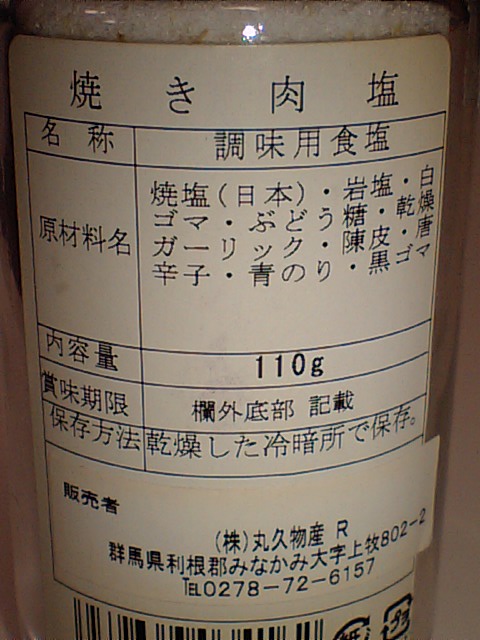 焼き肉塩
名称 調味用食塩
原材料名 焼塩(日本)・岩塩・白
ゴマ・ぶどう糖・乾燥
ガーリック・陳皮・唐
辛子・青のり・黒ゴマ
内容量 110g
賞味期限 欄外底部 記載
保存方法 乾燥した冷暗所で保存。
販売者
(株)丸久物産 R
群馬県利根郡みなかみ大字上牧802-2
℡0278-72-6157